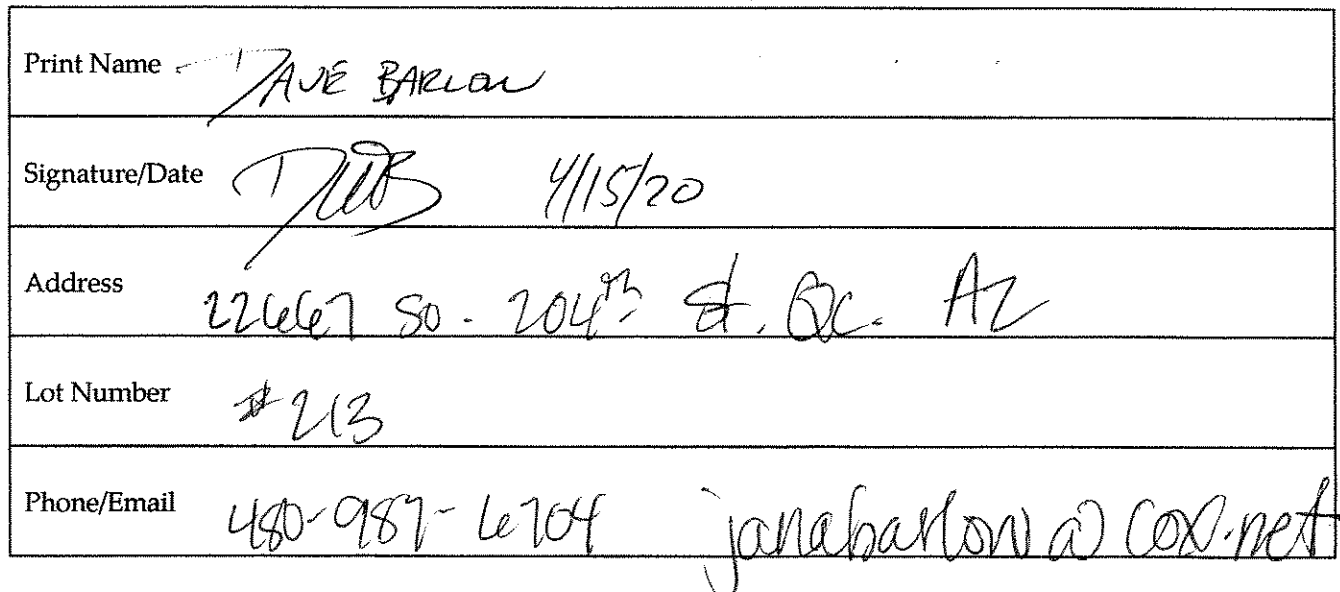 Print Name DAVE BARLOW
Signature/Date DWB 4/15/20
Address 22667 So. 204th St. QC. AZ
Lot Number #213
Phone/Email 480-987-6704 janabarlow@cox.net